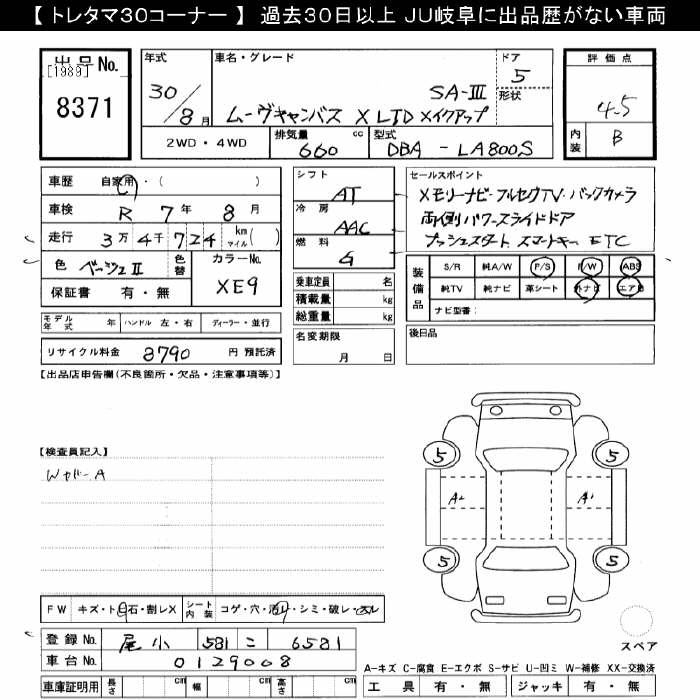 【 トレタマ30コーナー 】 過去30日以上 JU岐阜に出品歴がない車両
出品 No.
[1989]
8371
年式
30/8月
車名・グレード
SA-III
ムーヴキャンバス X LTD メイクアップ
ドア
5
形状
評価点
4.5
内装
B
2WD・4WD
排気量
660 cc
型式
DBA - LA800S
車歴 自家用・( )
車検 R 7年 8月
走行 3万4千724 km マイル( )
色 ベージュII
色替
カラーNo.
XE9
保証書 有・無
シフト
AT
冷房
AAC
燃料
G
乗車定員 名
積載量 kg
総重量 kg
セールスポイント
メモリーナビ・フルセグTV・バックカメラ
両側パワースライドドア
プッシュスタート スマートキー ETC
装備品
S/R 純A/W P/S P/W ABS
純TV 純ナビ 革シート 外ナビ エアB
ナビ型番:
モデル年式 年 ハンドル 左・右 ディーラー・並行
名変期限
月 日
後日品
リサイクル料金 8790 円 預託済
【出品店申告欄(不良箇所・欠品・注意事項等)】
【検査員記入】
Wカバー A
5
5
A2
A1
5
5
FW キズ・ト石・割レX
シート内装 コゲ・穴・汚レ・シミ・破レ・スレ
登録 No. 尾小 581 こ 6581
車台 No. 0129008
スペア
A-キズ C-腐食 E-エクボ S-サビ U-凹ミ W-補修 XX-交換済
車庫証明用 長さ cm 幅 cm 高さ cm
工具 有・無 ジャッキ 有・無